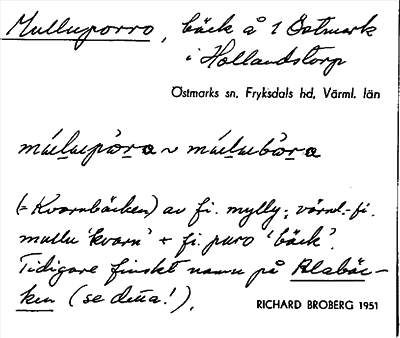 Mulluporro, bäck å 1 Östmark
i Hollandstorp
Östmarks sn. Fryksdals hd. Värml. län
múllupòrọ ~ múllubòrọ
(= Kvarnbäcken) av fi. mylly; värml.-fi.
mullu 'kvarn' + fi. puro 'bäck'.
Tidigare finskt namn på Alabäc-
ken (se detta!).
RICHARD BROBERG 1951